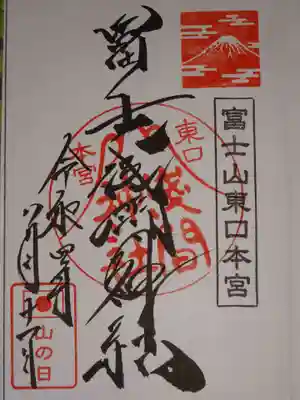 富士山東口本宮
冨士浅間神社
東口
本宮
浅間
令和四年
八月十一日
山の日